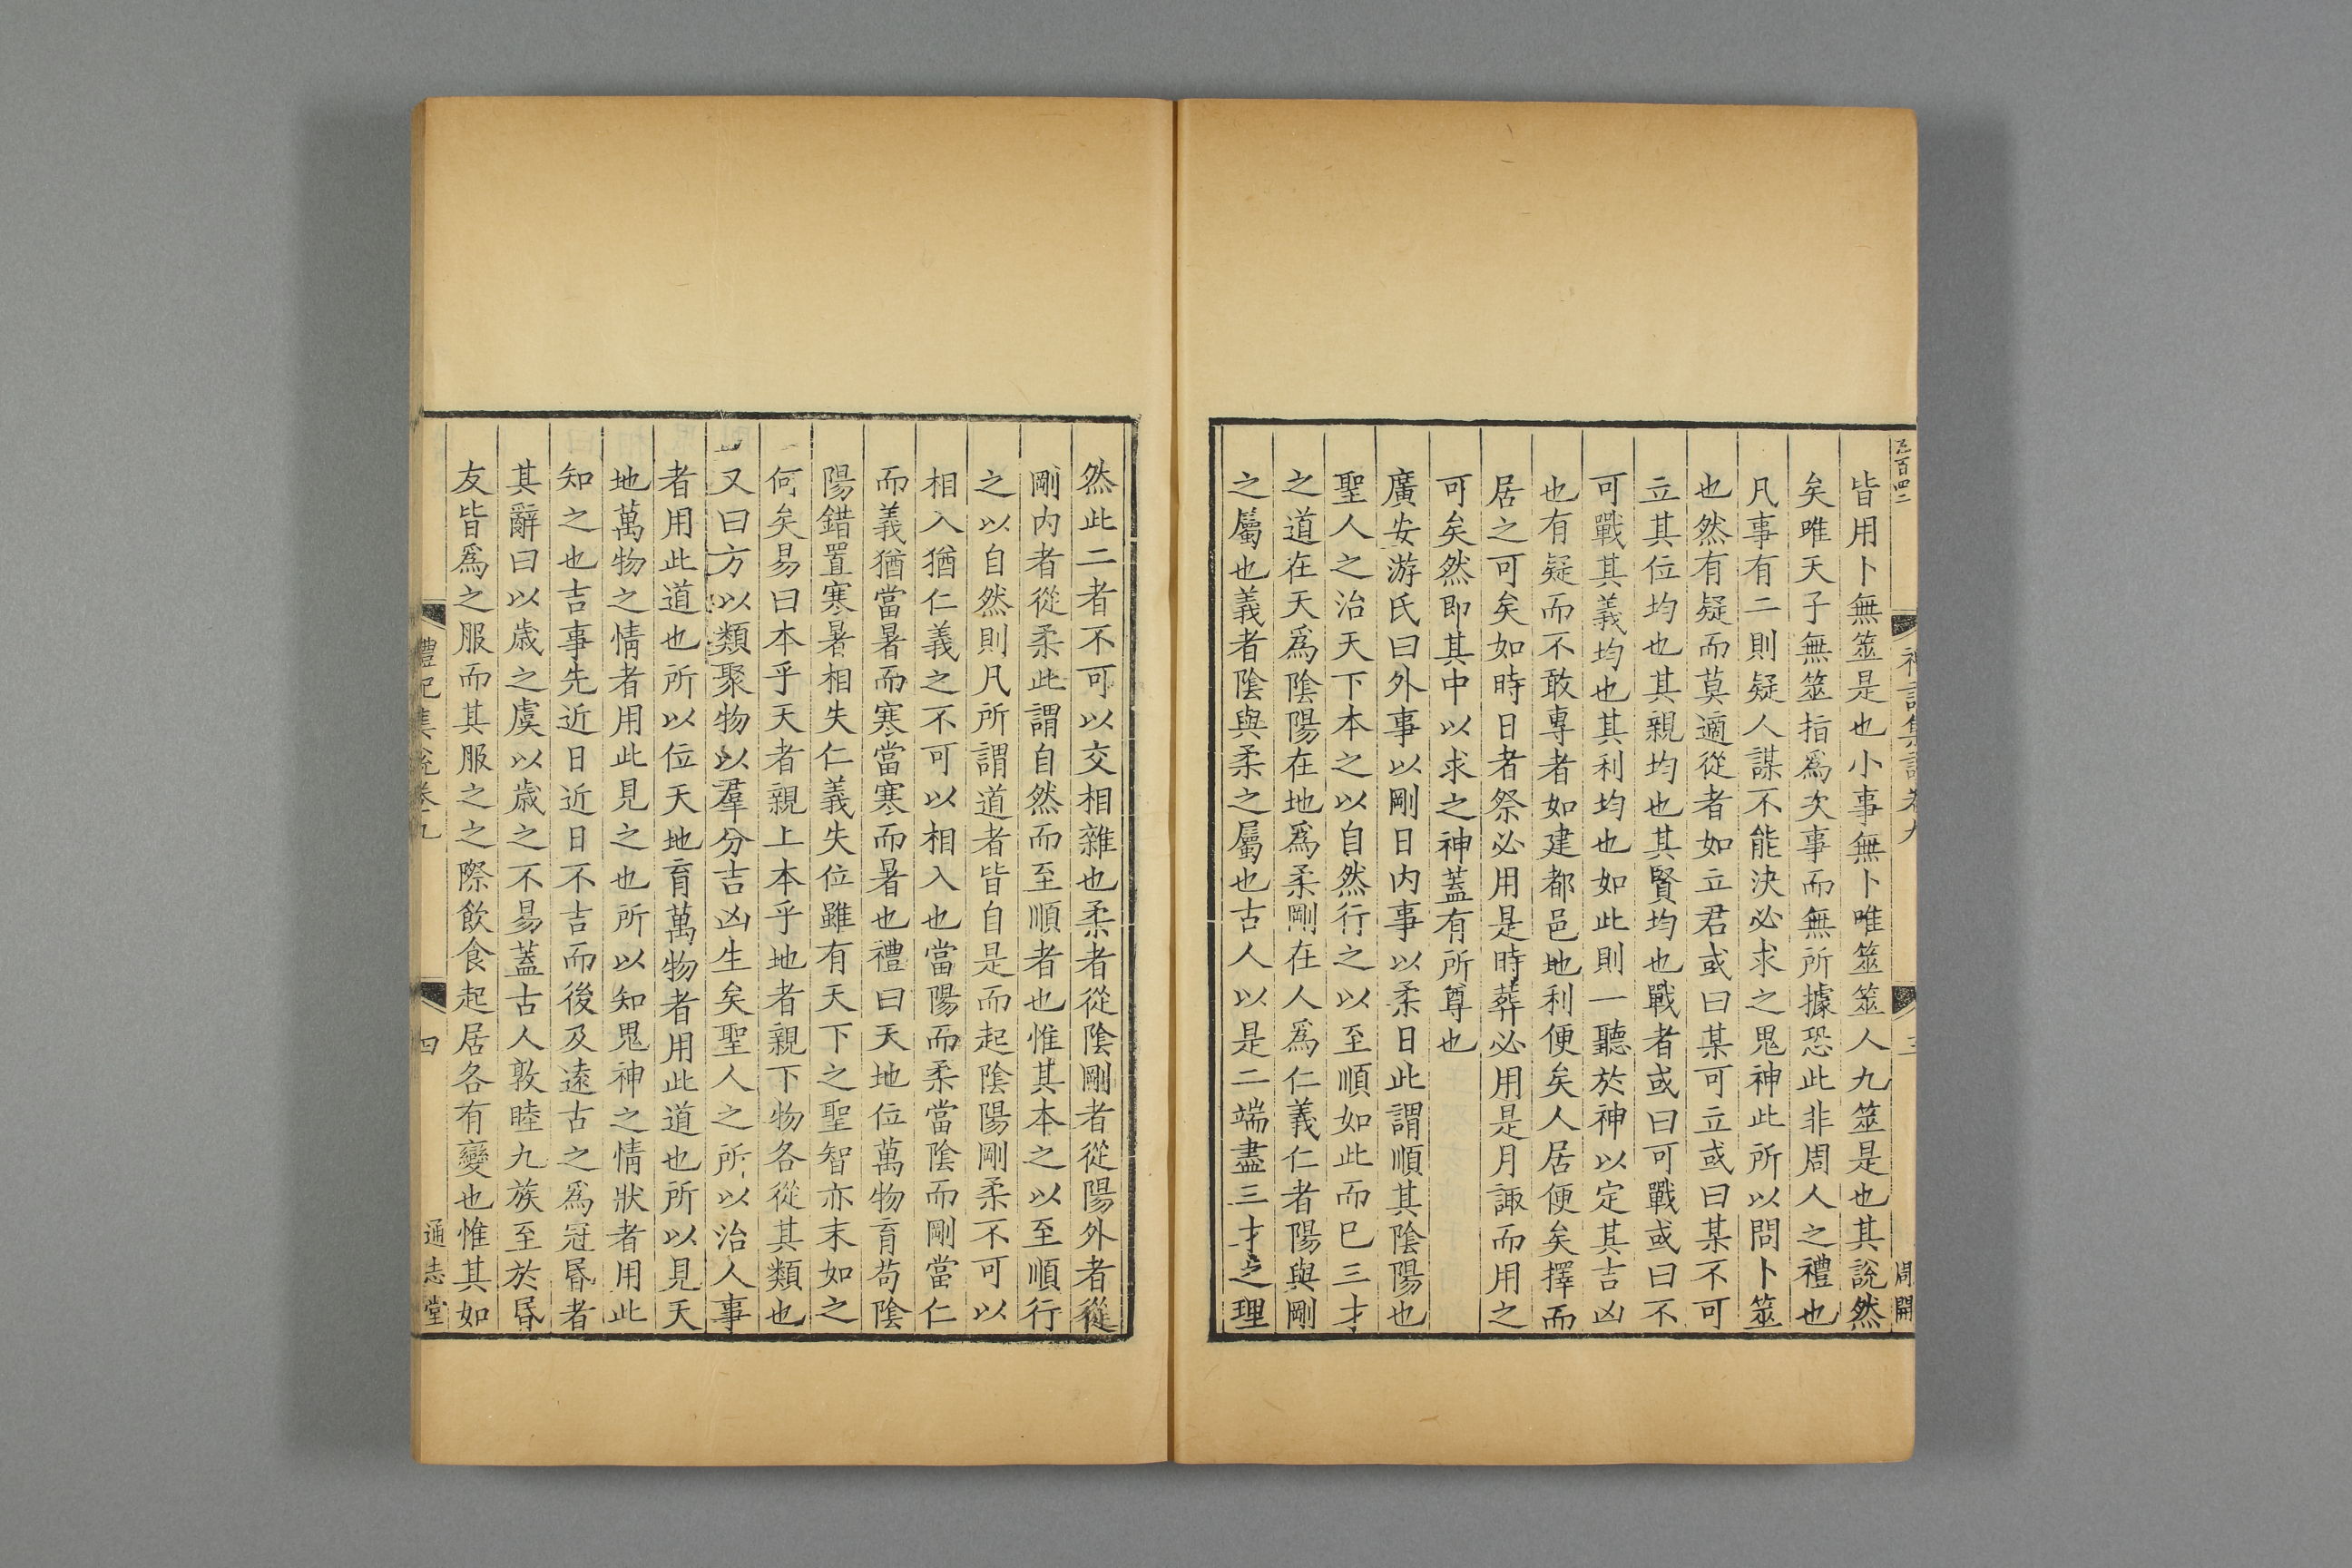 皆用卜無筮是也小事無卜唯筮筮人九筮是也其說然
矣唯天子無筮指爲次事而無所據恐此非周人之禮也
凡事有二則疑人謀不能決必求之鬼神此所以問卜筮
也然有疑而莫適從者如立君或曰某可立或曰某不可
立其位均也其親均也其賢均也戰者或曰可戰或曰不
可戰其義均也其利均也如此則一聽於神以定其吉凶
也有疑而不敢專者如建都邑地利便矣人居便矣擇而
居之可矣如時日者祭必用是時葬必用是月諏而用之
可矣然即其中以求之神蓋有所尊也
廣安游氏曰外事以剛日內事以柔日此謂順其陰陽也
聖人之治天下本之以自然行之以至順如此而已三才
之道在天爲陰陽在地爲柔剛在人爲仁義仁者陽與剛
之屬也義者陰與柔之屬也古人以是二端盡三才之理
然此二者不可以交相雜也柔者從陰剛者從陽外者從
剛內者從柔此謂自然而至順者也惟其本之以至順行
之以自然則凡所謂道者皆自是而起陰陽剛柔不可以
相入猶仁義之不可以相入也當陽而柔當陰而剛當仁
而義猶當暑而寒當寒而暑也禮曰天地位萬物育苟陰
陽錯置寒暑相失仁義失位雖有天下之聖智亦末如之
何矣易曰本乎天者親上本乎地者親下物各從其類也
又曰方以類聚物以羣分吉凶生矣聖人之所以治人事
者用此道也所以位天地育萬物者用此道也所以見天
地萬物之情者用此見之也所以知鬼神之情狀者用此
知之也吉事先近日近日不吉而後及遠古之爲冠昬者
其辭曰以歲之虞以歲之不易蓋古人敦睦九族至於昬
友皆爲之服而其服之之際飲食起居各有變也惟其如
禮記集說卷九
四
通志堂